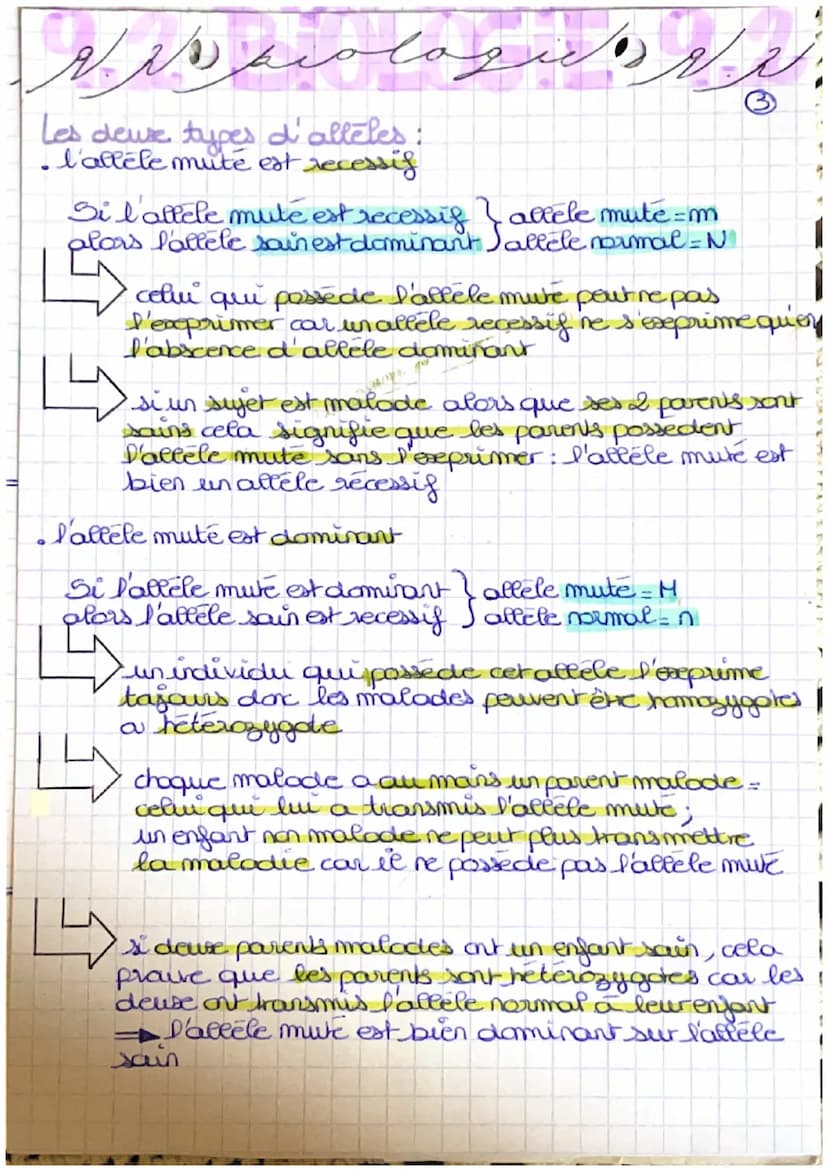 9.2 BIOLOGIE 9.2
9.2 biologie 9.2
3
Les deux types d'allèles :
. l'allèle muté est recessif
Si l'allèle muté est recessif } allèle muté = m
alors l'allèle sain est dominant } allèle normal = N
celui qui possède l'allèle muté peut ne pas
l'exprimer car un allèle recessif ne s'exprime qu'en
l'abscence d'allèle dominant
si un sujet est malade alors que ses 2 parents sont
sains cela signifie que les parents possèdent
l'allèle muté sans l'exprimer : l'allèle muté est
bien un allèle récessif
. l'allèle muté est dominant
Si l'allèle muté est dominant } allèle muté = M
alors l'allèle sain est recessif } allèle normal = n
un individu qui possède cet allèle l'exprime
toujours donc les malades peuvent être homozygotes
ou hétérozygote
chaque malade a au moins un parent malade =
celui qui lui a transmis l'allèle muté ;
un enfant non malade ne peut plus transmettre
la maladie car il ne possède pas l'allèle muté
si deux parents malades ont un enfant sain, cela
prouve que les parents sont hétérozygotes car les
deux ont transmis l'allèle normal à leur enfant
⇒ l'allèle muté est bien dominant sur l'allèle
sain